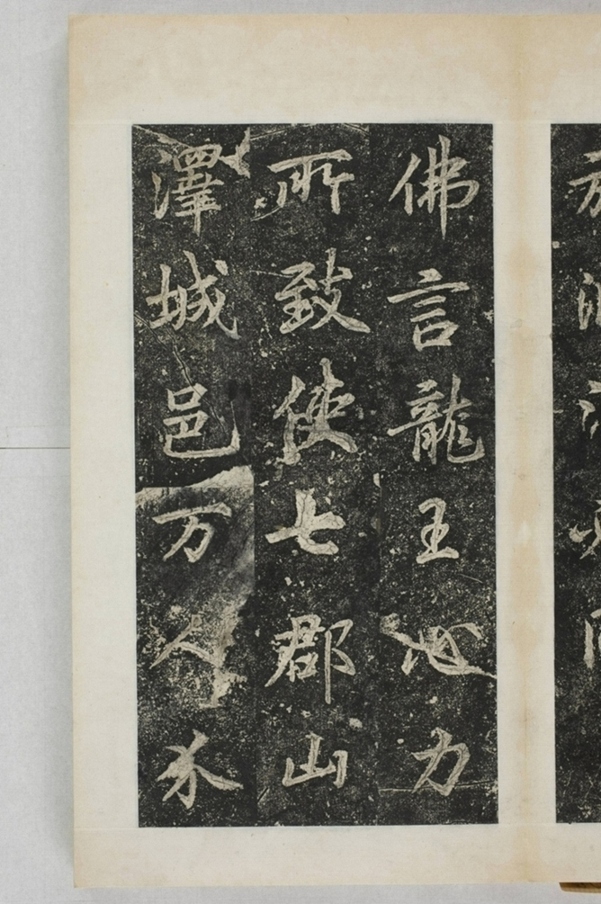 佛言龍王心力
所致使七郡山
澤城邑万人不